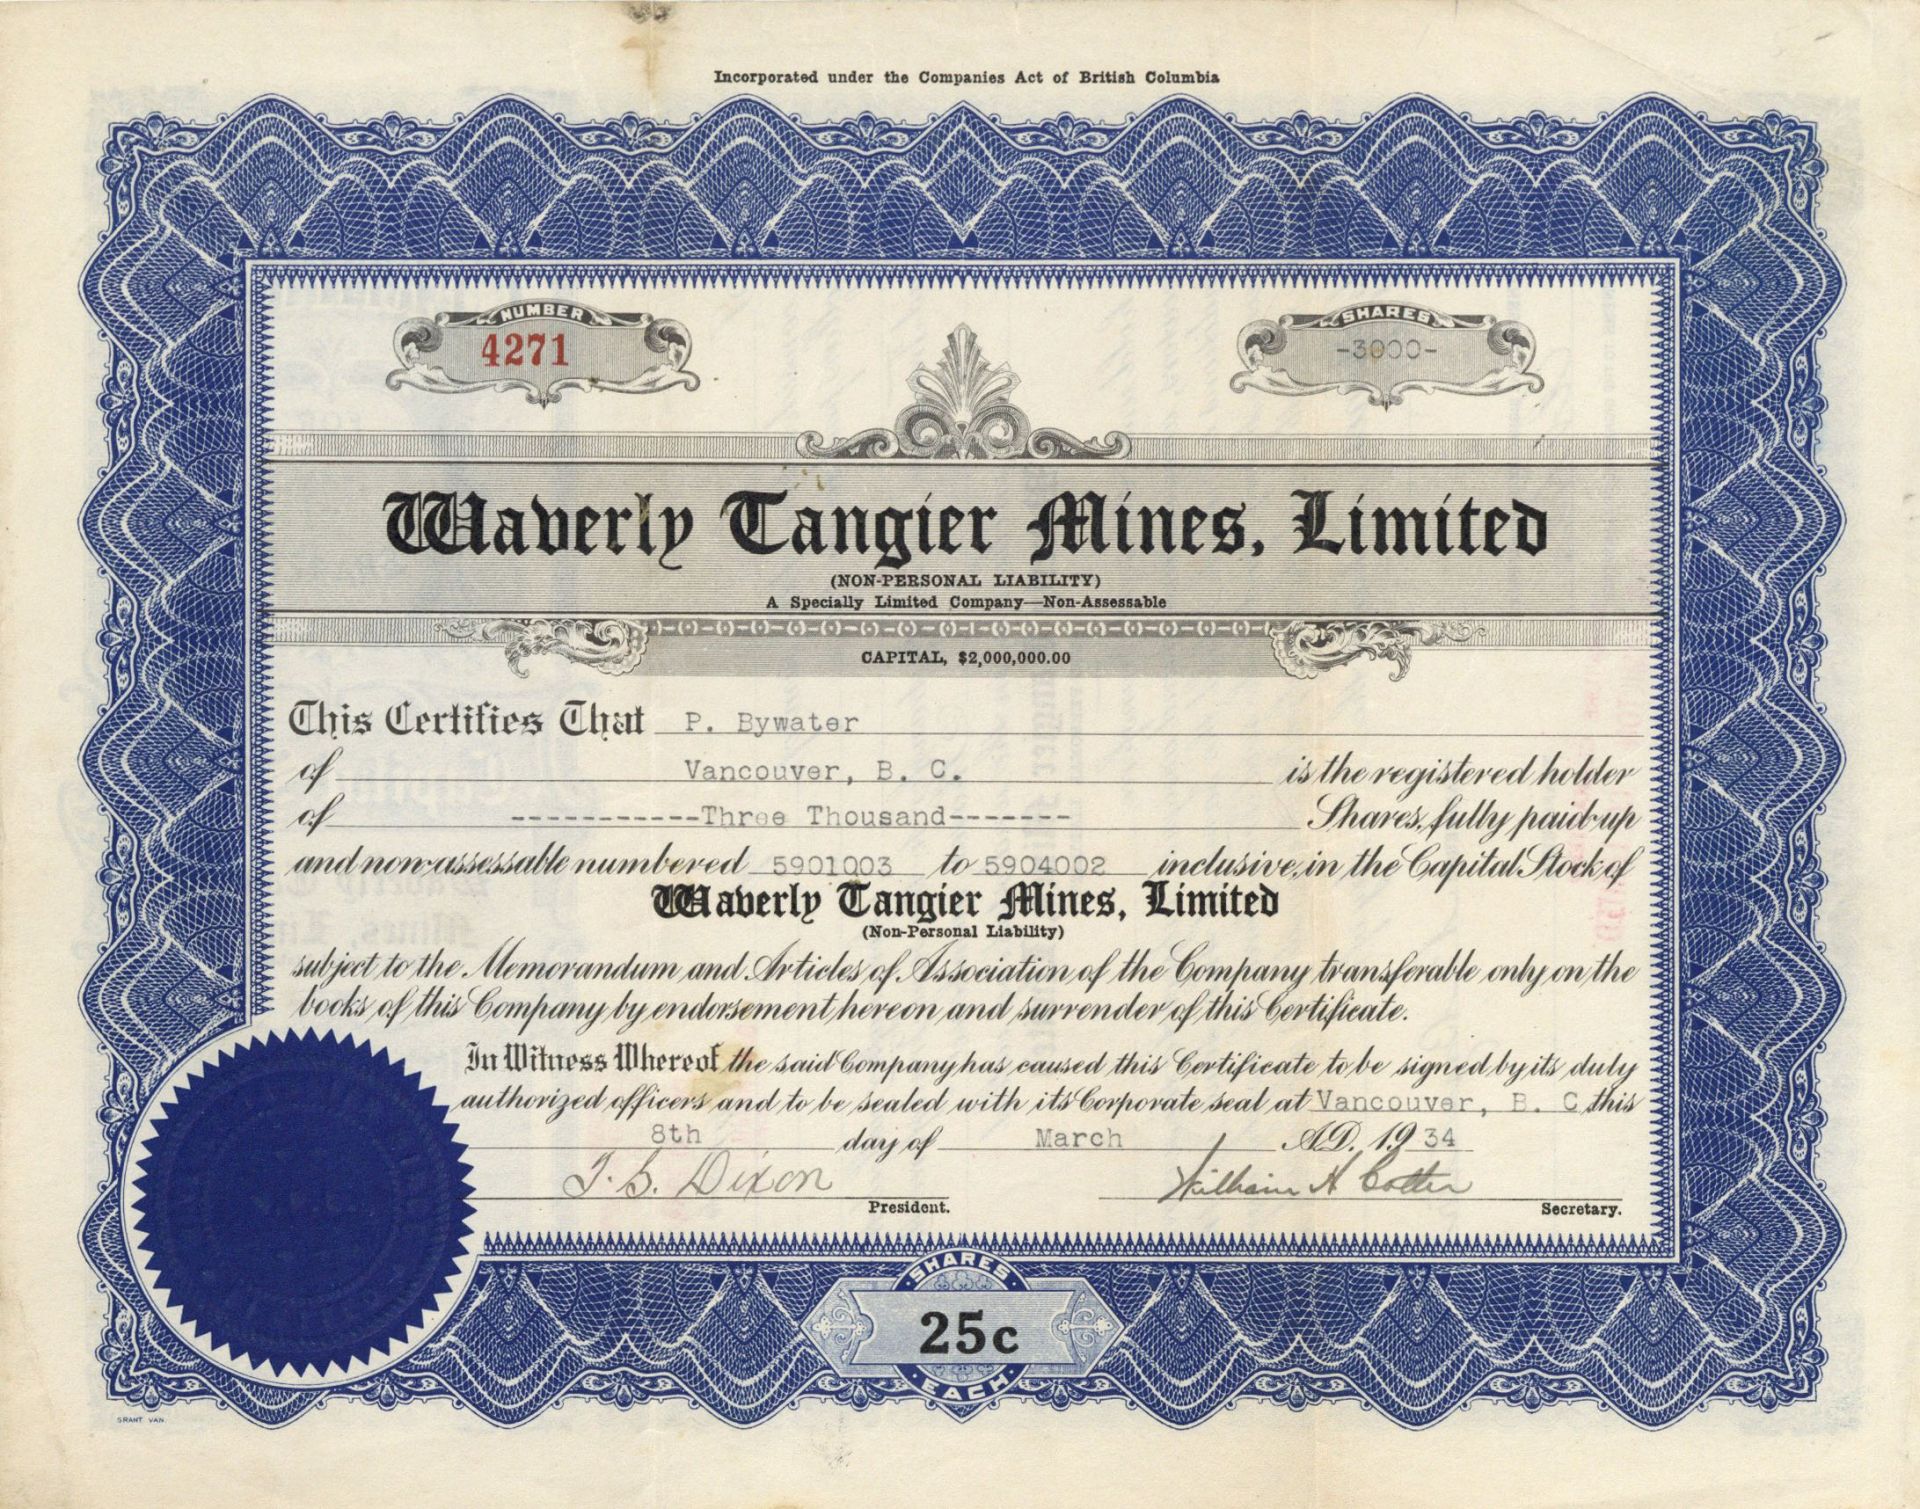 Incorporated under the Companies Act of British Columbia
NUMBER
4271
SHARES
-3000-
Waverly Tangier Mines, Limited
(NON-PERSONAL LIABILITY)
A Specially Limited Company—Non-Assessable
CAPITAL, $2,000,000.00
This Certifies That P. Bywater
of Vancouver, B. C. is the registered holder
of -----------Three Thousand------- Shares, fully paid-up
and non-assessable numbered 5901003 to 5904002 inclusive, in the Capital Stock of
Waverly Tangier Mines, Limited
(Non-Personal Liability)
subject to the Memorandum and Articles of Association of the Company transferable only on the
books of this Company by endorsement hereon and surrender of this Certificate.
In Witness Whereof the said Company has caused this Certificate to be signed by its duly
authorized officers and to be sealed with its Corporate seal at Vancouver, B. C this
8th day of March A.D. 1934
Dixon William H Cotter
President. Secretary.
SHARES
25c
EACH